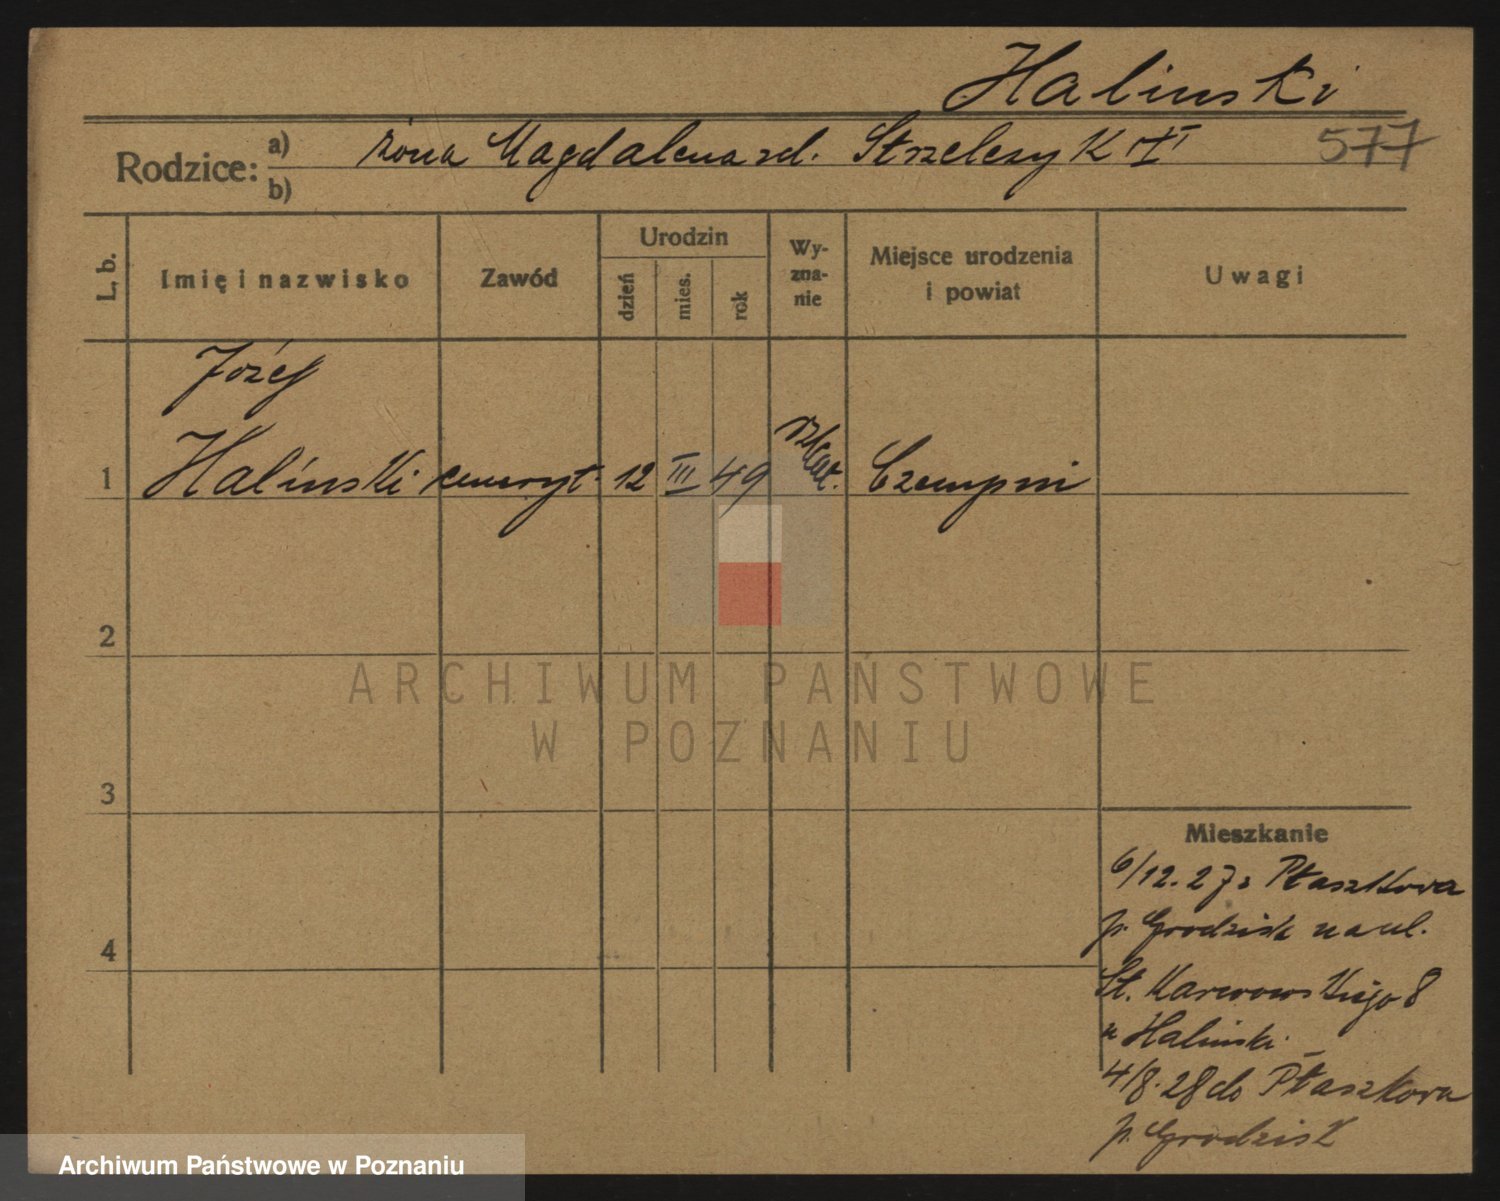 Halinski
Rodzice: a) żona Magdalena zd. Strzelczyk
b)
577
L. b.
Imię i nazwisko
Zawód
Urodzin
dzień
mies.
rok
Wy-
zna-
nie
Miejsce urodzenia
i powiat
Uwagi
Józef
1 Halinski emeryt. 12 III 49 rz kat. Czempiń
2
ARCHIWUM PAŃSTWOWE
W POZNANIU
3
Mieszkanie
6/12.27 z Ptaszkowa
p. Grodzisk na ul.
4
St. Karwowskiego 8
u Halinski
4/8.28 do Ptaszkowa
p. Grodzisk
Archiwum Państwowe w Poznaniu